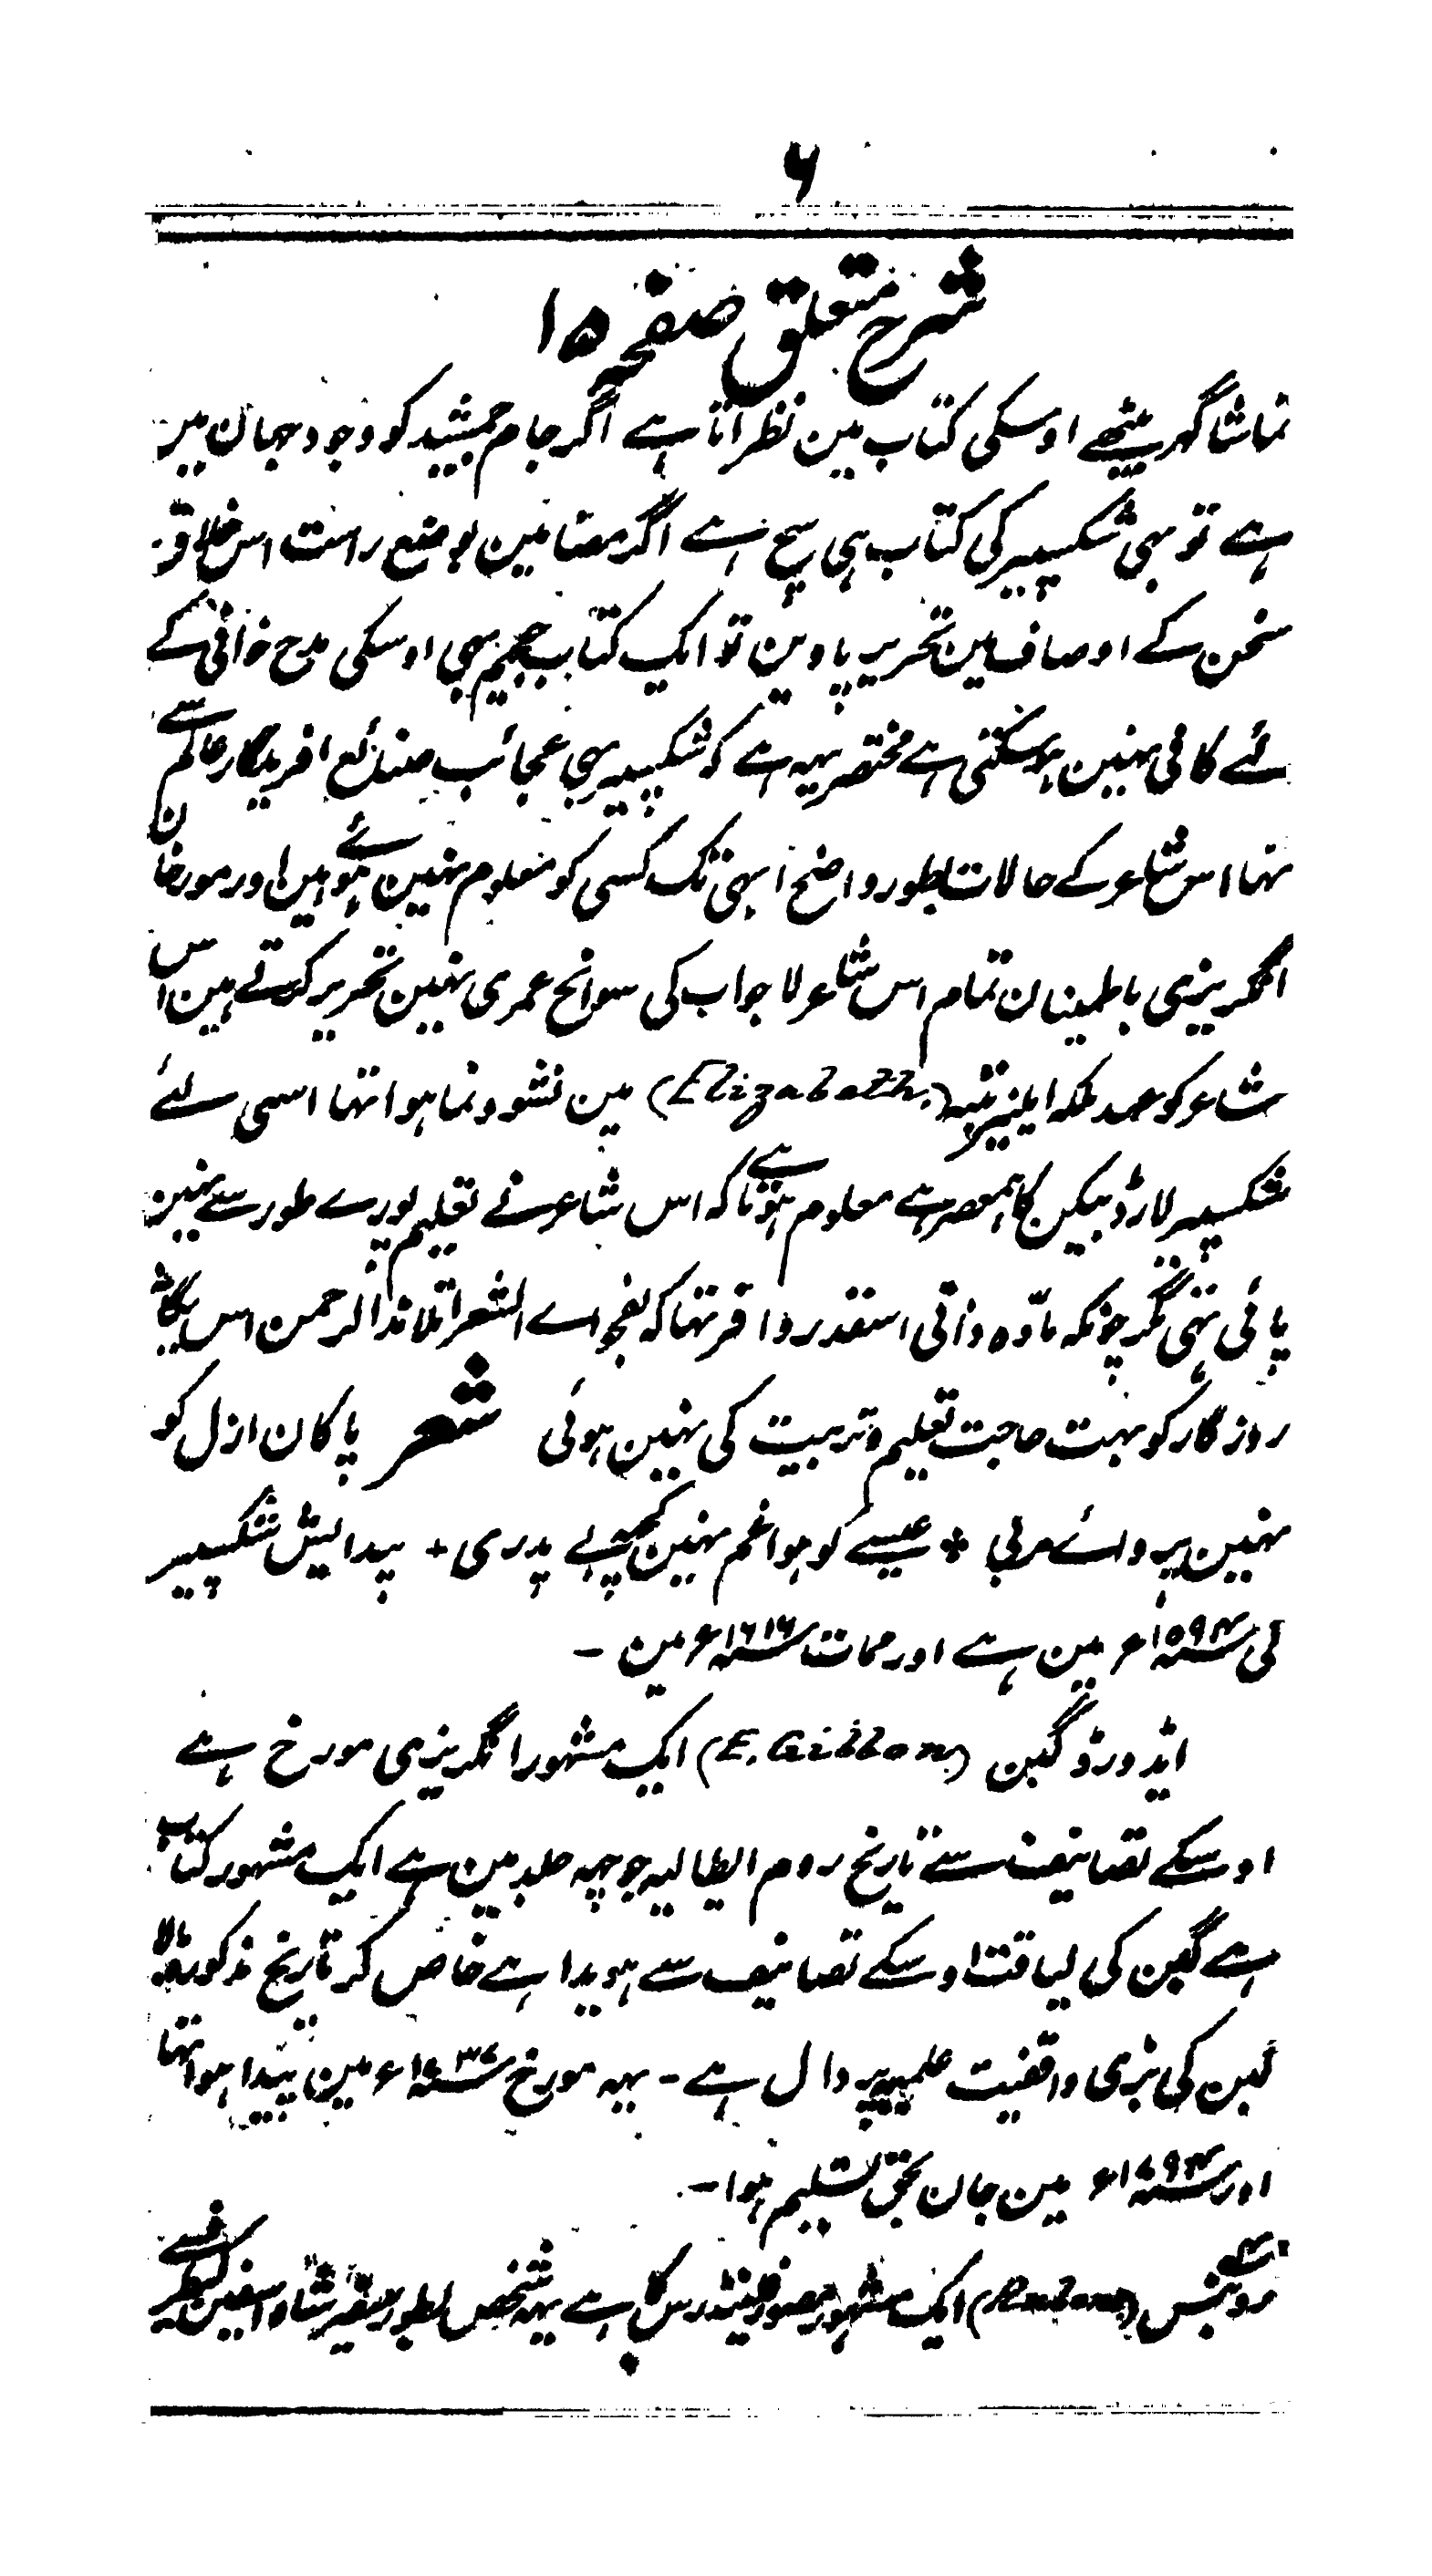 ۶
شرح متعلق صفحہ ۱۵
تماشا گھر بیٹھے اوسکی کتاب مین نظر اتا ہے اگر جام جمشید کو وجود جہان مین
ہے تو بہی شکسپیر کی کتاب ہی سچ ہے اگر مضامین بوضع راست اس خلاق
سخن کے اوصاف مین تحریر پاوین تو ایک کتاب حجیم بہی اوسکی مدح خوانی کے
لئے کافی نہین ہوسکتی ہے مختصر یہہ ہے کہ شکسپیر بہی عجائب صنائع افریدگار عالم سے
تہا اس شاعر کے حالات بطور واضح ابہی تک کسی کو معلوم نہین ہوئے ہین اور مورخان
انگریزی باطمینان تمام اس شاعر لاجواب کی سوانح عمری نہین تحریر کرتے ہین اس
شاعر کو عہد ملکہ ایلیزبیتہ (Elizabath.) مین نشو و نما ہوا تہا اسی لئے
شکسپیر لارڈ بیکن کا ہمعصر ہے معلوم ہوتا ہے کہ اس شاعر نے تعلیم پورے طور سے نہین
پائی تہی مگر چونکہ مادّہ ذاتی اسقدر وافر تہا کہ بفحواے الشعرا تلامذ الرحمن اس یگانہ
روزگار کو بہت حاجت تعلیم و تربیت کی نہین ہوئی شعر پاکان ازل کو
نہین پرواے مربی * عیسے کو ہوا غم نہین کچھ بے پدری + پیدایش شکسپیر
کی سنہ ۱۵۹۴ء مین ہے اور ممات سنہ ۱۶۱۶ء مین ۔
ایڈورڈ گبن (E. Gibbon) ایک مشہور انگریزی مورخ ہے
اوسکے تصانیف سے تاریخ روم الطالیہ جو چہہ جلد مین ہے ایک مشہور کتاب
ہے گبن کی لیاقت اوسکے تصانیف سے ہویدا ہے خاص کر تاریخ مذکورہ بالا
گبن کی بڑی واقفیت علمیہ پر دال ہے ۔ یہہ مورخ سنہ ۱۷۳۷ء مین پیدا ہوا تہا
اور سنہ ۱۷۹۴ء مین جان بحق تسلیم ہوا ۔
روبنس (Rubens) ایک مشہور مصور فلینڈرس کا ہے یہہ شخص بطور سفیر شاہ اسپین کیطرف سے